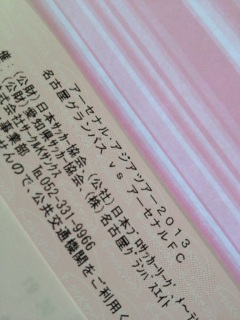 アーセナル・アジアツアー2013
名古屋グランパス vs アーセナルFC
(公財)日本サッカー協会、(公社)日本プロサッカーリーグ、
(公財)愛知県サッカー協会、(株)名古屋グランパスエイト
事業部 ℡052-331-9966
ませんので、公共交通機関をご利用く